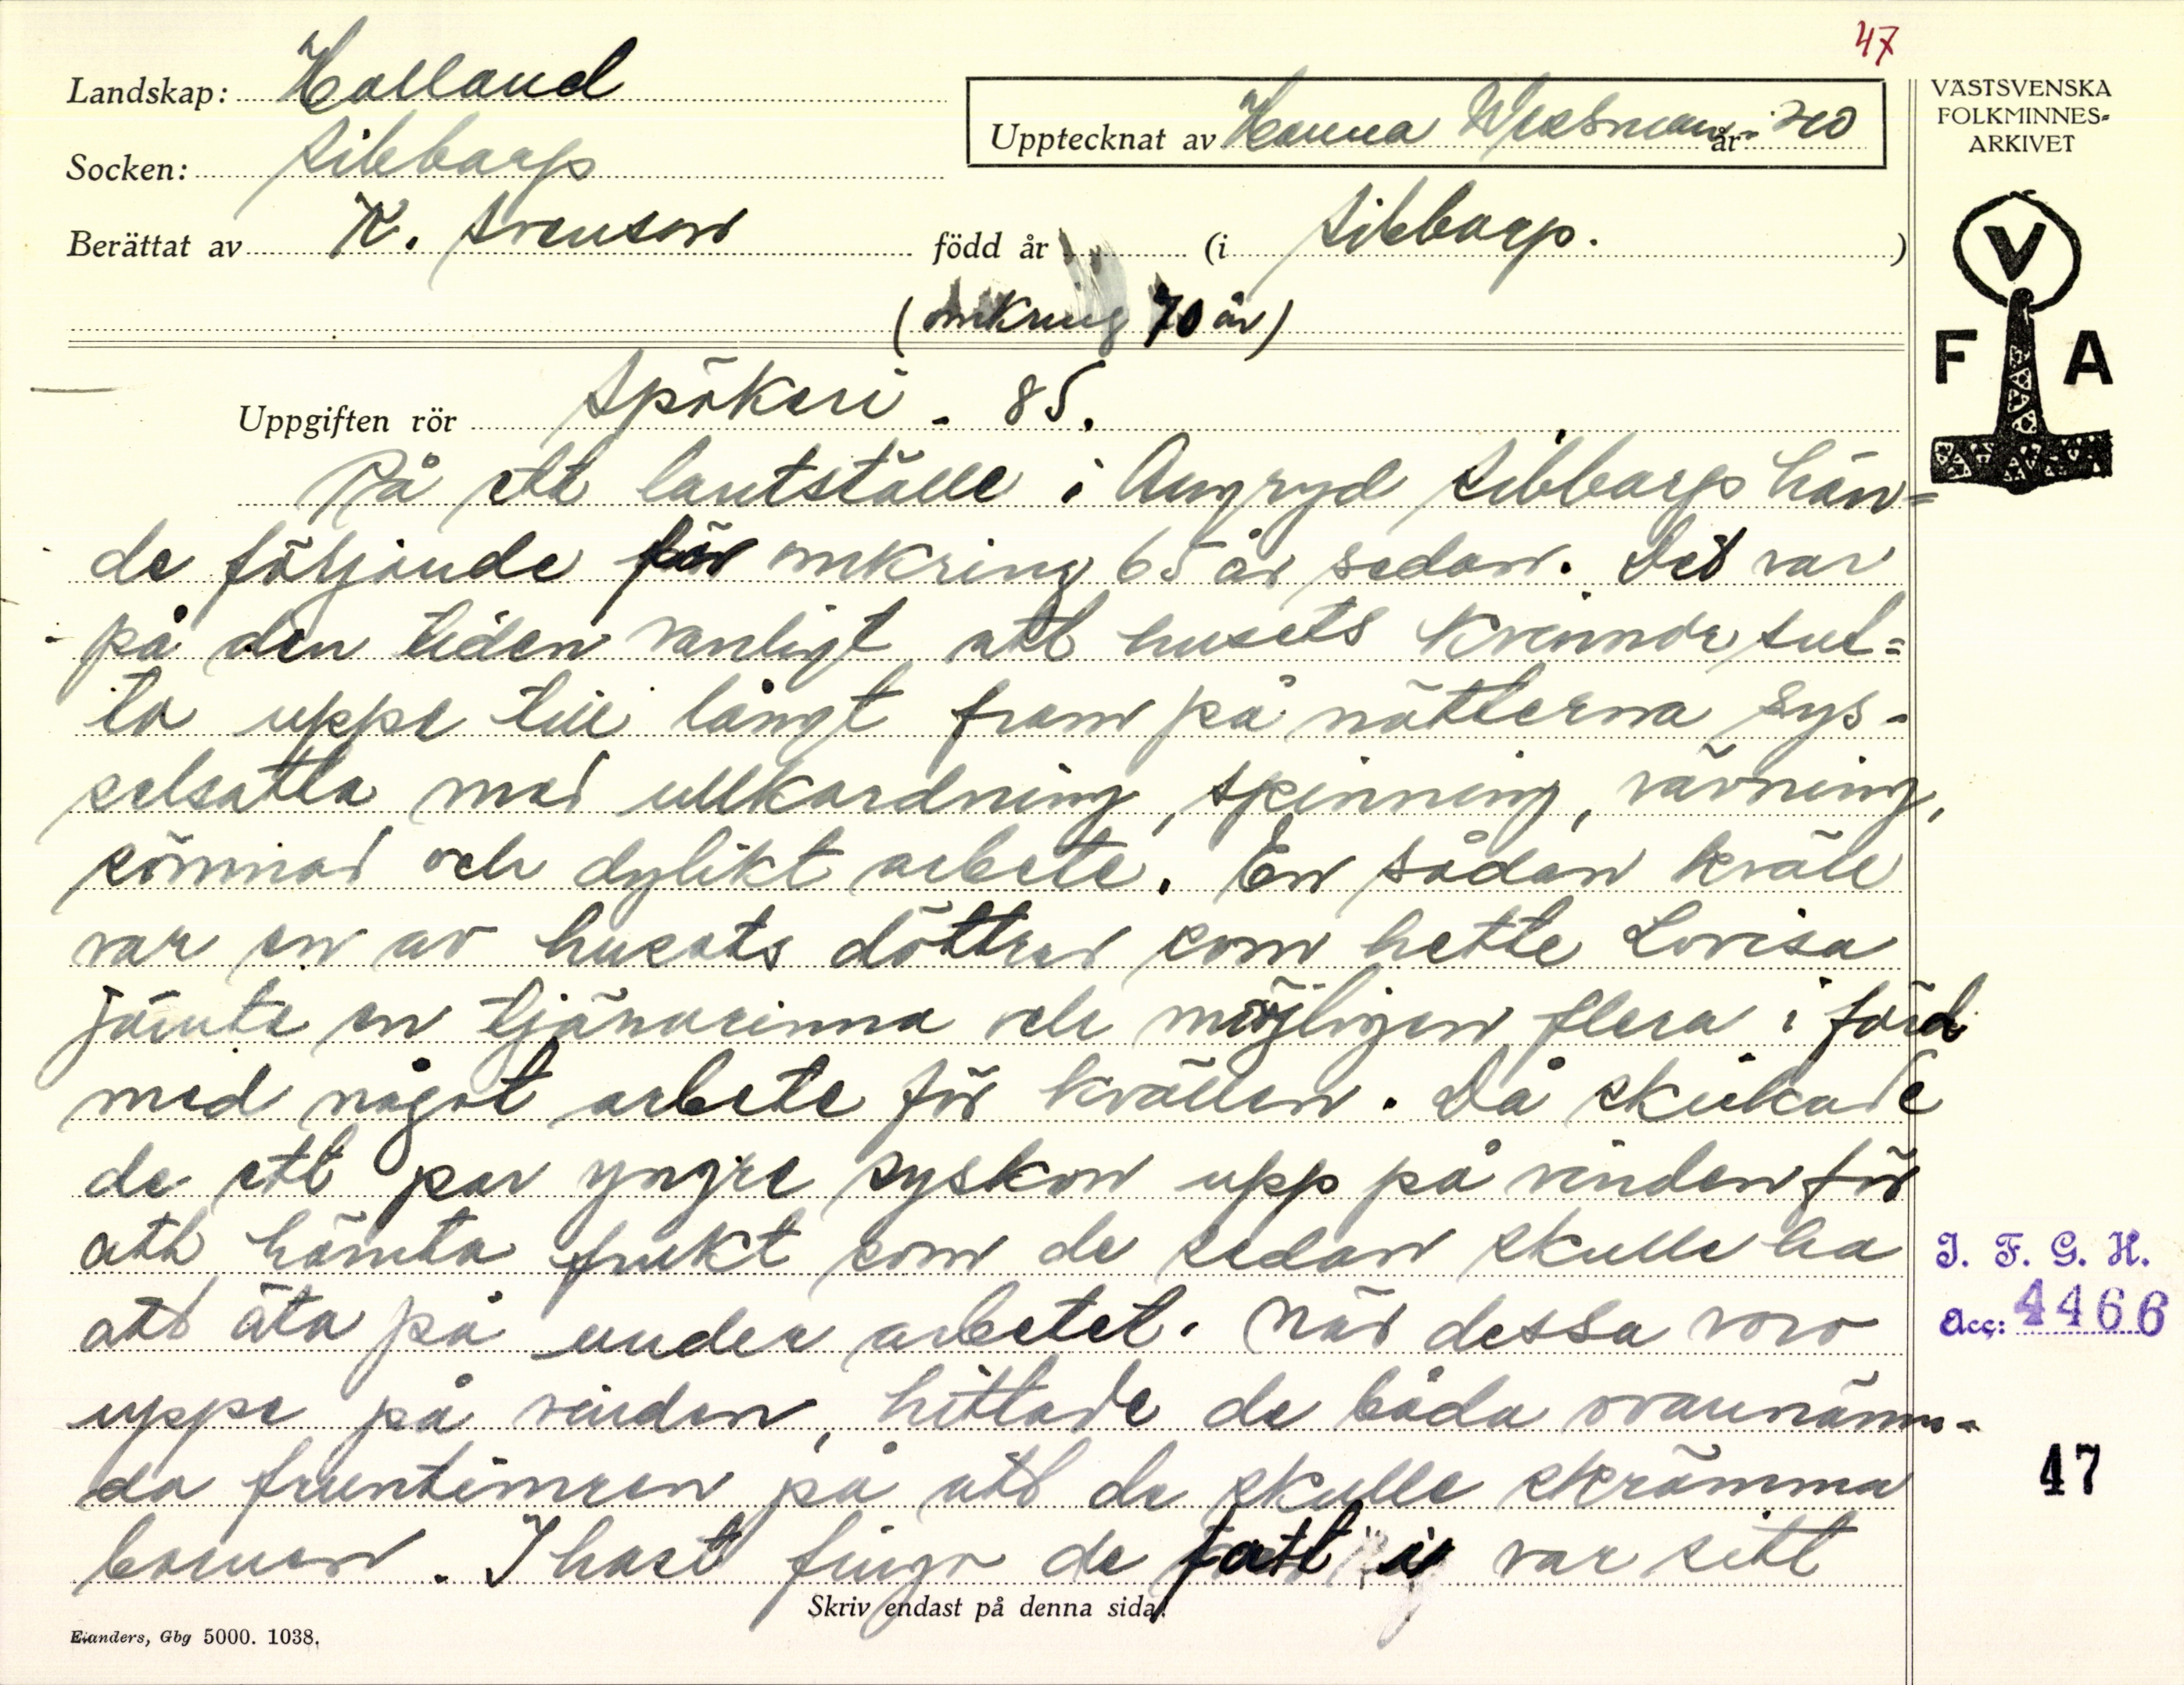 47
Landskap: Halland
Socken: Sibbarp
Upptecknat av Hanna år
Berättat av K. Svenson född år (i Sibbarp.)
(omkring 70 år)
VÄSTSVENSKA
FOLKMINNES-
ARKIVET
V
F A
Uppgiften rör Spökeri. 85.
På ett lantställe i Sibbarp hän=
de följande för omkring 65 år sedan. Det var
på den tiden vanligt att husets kvinnor sut=
to uppe till långt fram på nätterna sys-
selsatta med ullkardning, spinning, vävning,
sömnad och dylikt arbete. En sådan kväll
var en av husets döttrar som hette Lovisa
jämte en tjänarinna och möjligen flera i färd
med något arbete för kvällen. Då skickade
de ett par yngre syskon upp på vinden för
att hämta frukt som de sedan skulle ha
att äta på under arbetet. När dessa voro
uppe på vinden, hittade de båda ovannämn-
da fruntimren på att de skulle skrämma
barnen. I hast fingo de fatt i var sitt
Skriv endast på denna sida!
Elanders, Gbg 5000. 1038.
I. F. G. H.
Acc: 4466
47